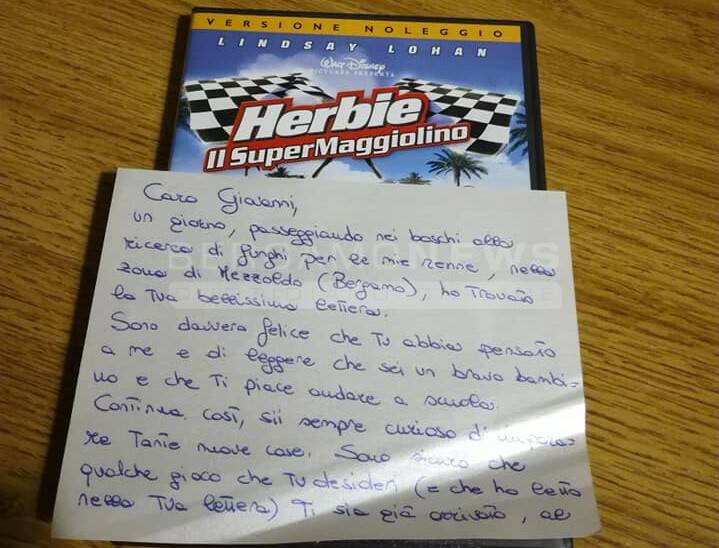 VERSIONE NOLEGGIO
LINDSAY LOHAN
WALT DISNEY
PICTURES PRESENTA
Herbie
Il SuperMaggiolino
Caro Giovanni,
un giorno, passeggiando nei boschi alla
ricerca di funghi per le mie renne, nella
zona di Mezzoldo (Bergamo), ho trovato
la Tua bellissima lettera.
Sono davvero felice che Tu abbia pensato
a me e di leggere che sei un bravo bambi-
no e che Ti piace andare a scuola.
Continua così, sii sempre curioso di impara-
re Tante nuove cose. Sono sicuro che
qualche gioco che Tu desideri (e che ho letto
nella Tua lettera) Ti sia già arrivato, al
BERGAMONEWS